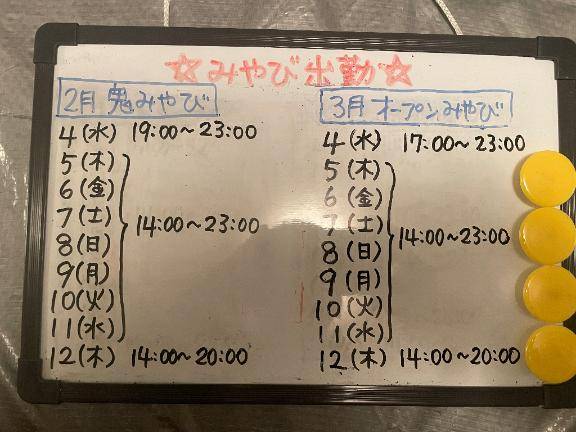 ☆みやび出勤☆
2月 鬼みやび
4(水) 19:00~23:00
5(木)
6(金)
7(土) 14:00~23:00
8(日)
9(月)
10(火)
11(水)
12(木) 14:00~20:00
3月 オープンみやび
4(水) 17:00~23:00
5(木)
6(金)
7(土)
8(日) 14:00~23:00
9(月)
10(火)
11(水)
12(木) 14:00~20:00